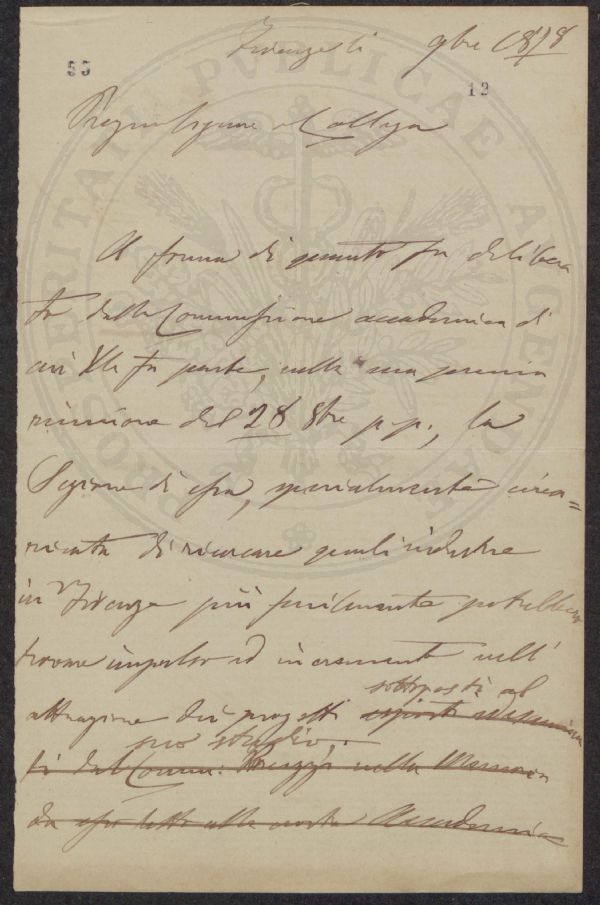 Firenze li 9bre 1878
55
12
Pregmo Signore e Collega
A forma di quanto fu delibera
to dalla Commissione accademica di
cui Ella fa parte, nella sua prima
riunione del 28 8bre p.p., la
Sezione di essa, specialmente inca=
ricata di ricercare quali industrie
in Firenze più facilmente potrebbero
trovare impulso ed incremento nell'
attuazione dei progetti sottoposti al
suo studio,
ti dal Comm: nella Memoria
da essa letta alla nostra Accademia
PROSPERITATI PUBLICAE AUGENDAE